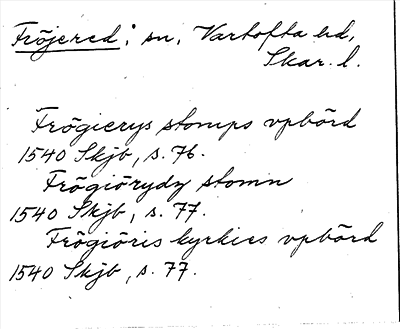 Fröjered: sn, Vartofta hd,
Skar. l.
Frögierys stomps vpbörd
1540 Skjb, s. 76.
Frögiörydz stomn
1540 Skjb, s. 77.
Frögiöris kyrkies vpbörd
1540 Skjb, s. 77.